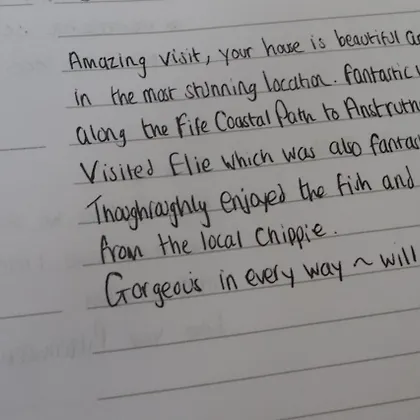 Amazing visit, your house is beautiful a
in the most stunning location. Fantastic
along the Fife Coastal Path to Anstruth
Visited Elie which was also fantas
Thoughraughly enjoyed the fish and
from the local Chippie.
Gorgeous in every way ~ will